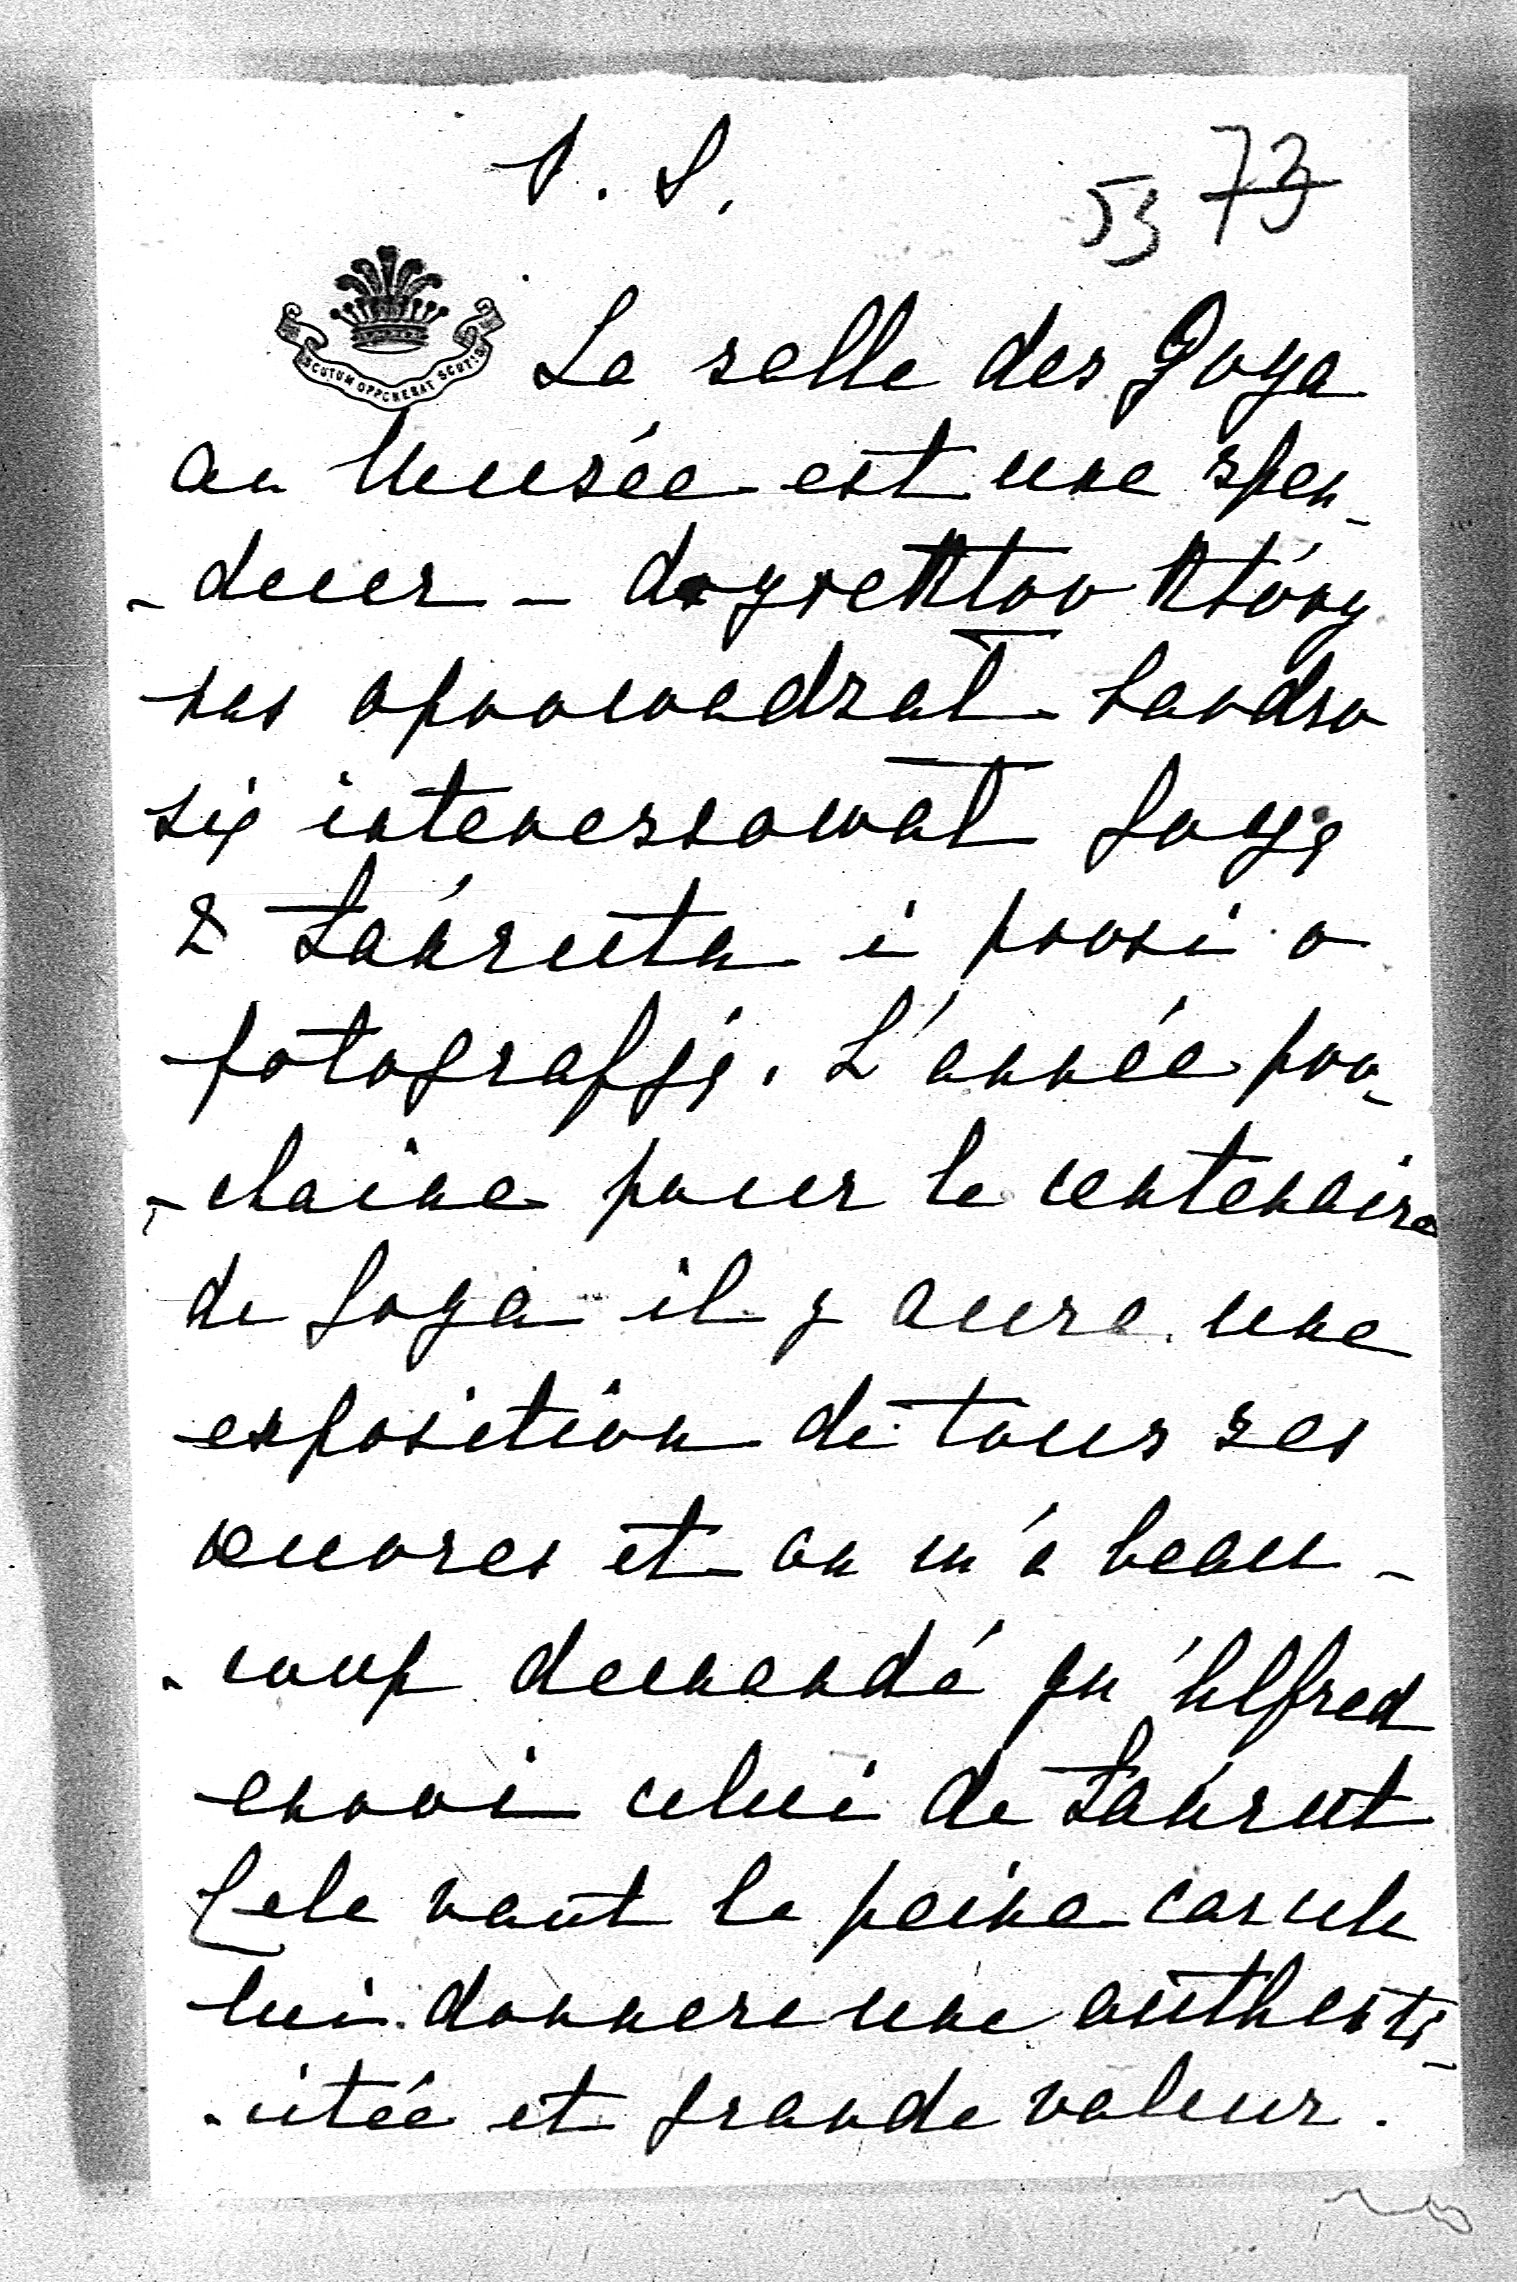 P. S.
53 73
SCUTUM OPPONEBAT SCUTIS
La salle des Goya
au Musée est une splen-
-deur - dyrektor który
nas oprowadzał bardzo
się interessował Goyą
z Łańcuta i prosi o
fotografję. L'année pro-
-chaine pour le centenaire
de Goya il y aura une
exposition de tous ses
œuvres et on m'a beau-
-coup demandé qu'Alfred
envoi celui de Łańcut
Cela vaut la peine car cela
lui donnera une authenti-
-citée et grande valeur.